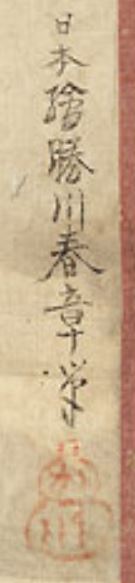 日本繪勝川春章筆